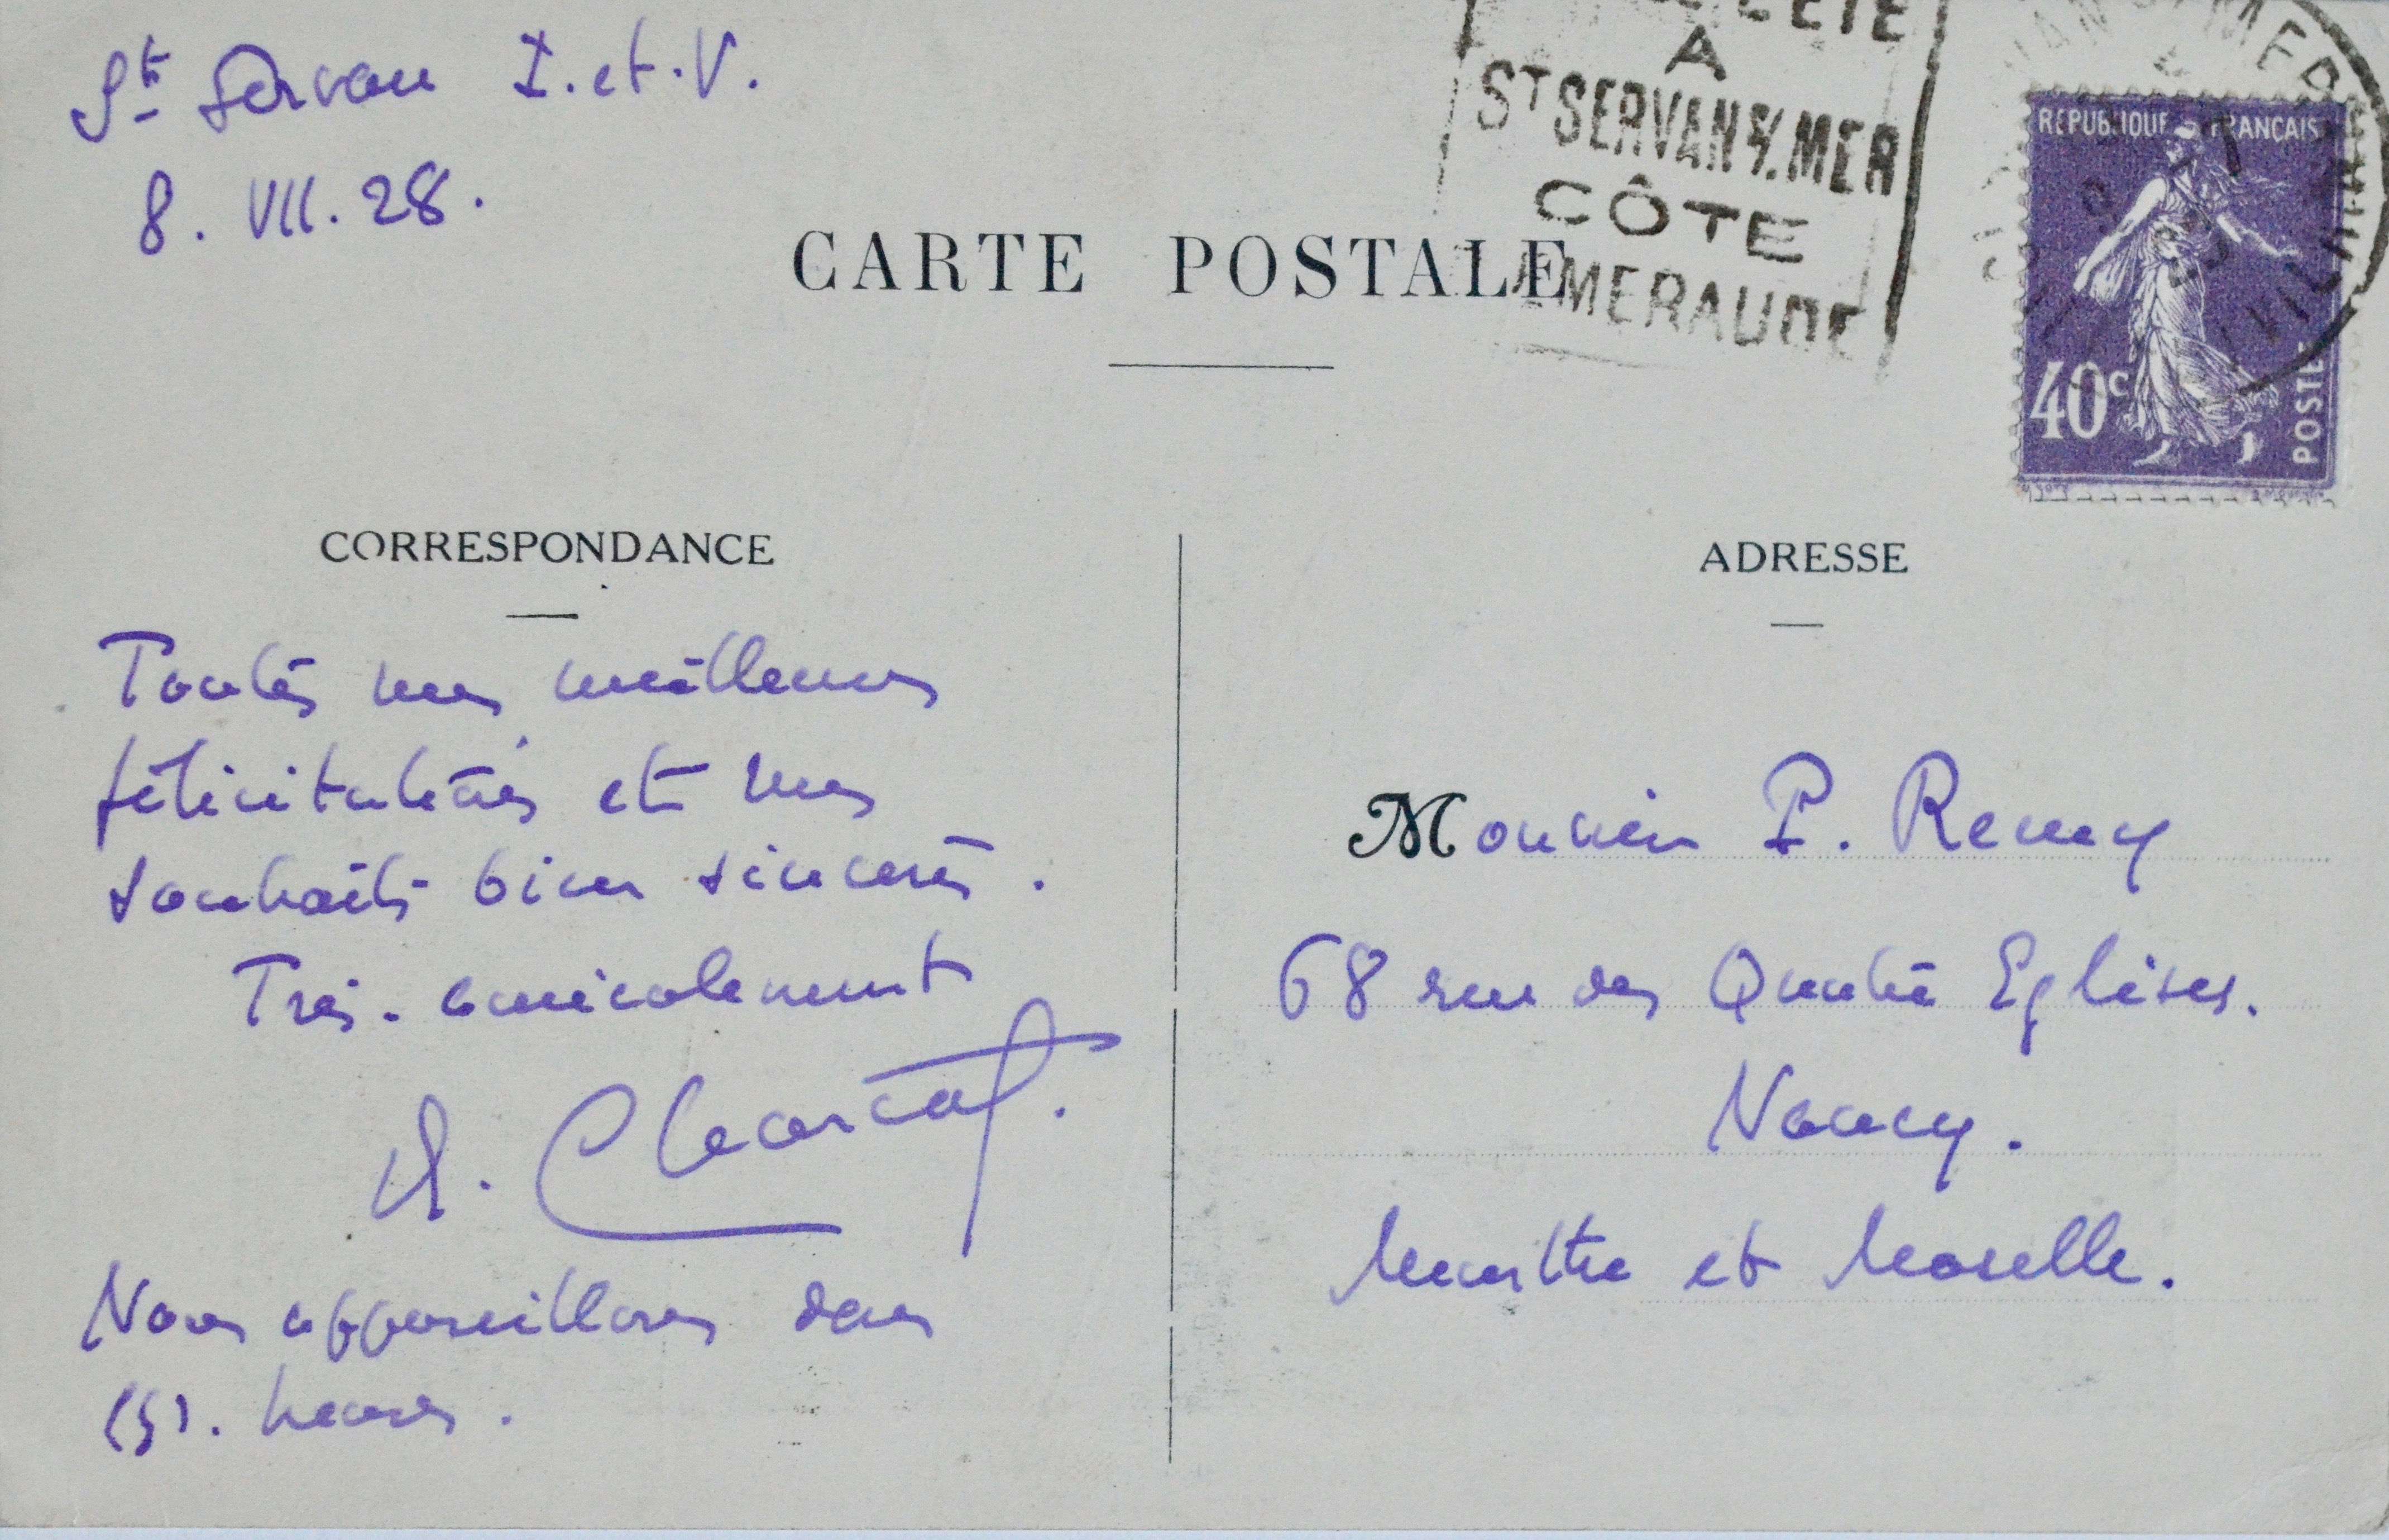 St Servan I. et. V.
8. VII. 28.
L'ETE
A
ST SERVAN S/ MER
CÔTE
EMERAUDE
REPUBLIQUE FRANCAIS
40c
POSTE
CARTE POSTALE
CORRESPONDANCE
Toutes mes meilleures
félicitations et mes
souhaits bien sincères.
Très. amicalement
Charcot.
Nous appareillons dans
(5). heures.
ADRESSE
Monsieur P. Remy
68 rue des Quatre Eglises.
Nancy.
Meurthe et Moselle.